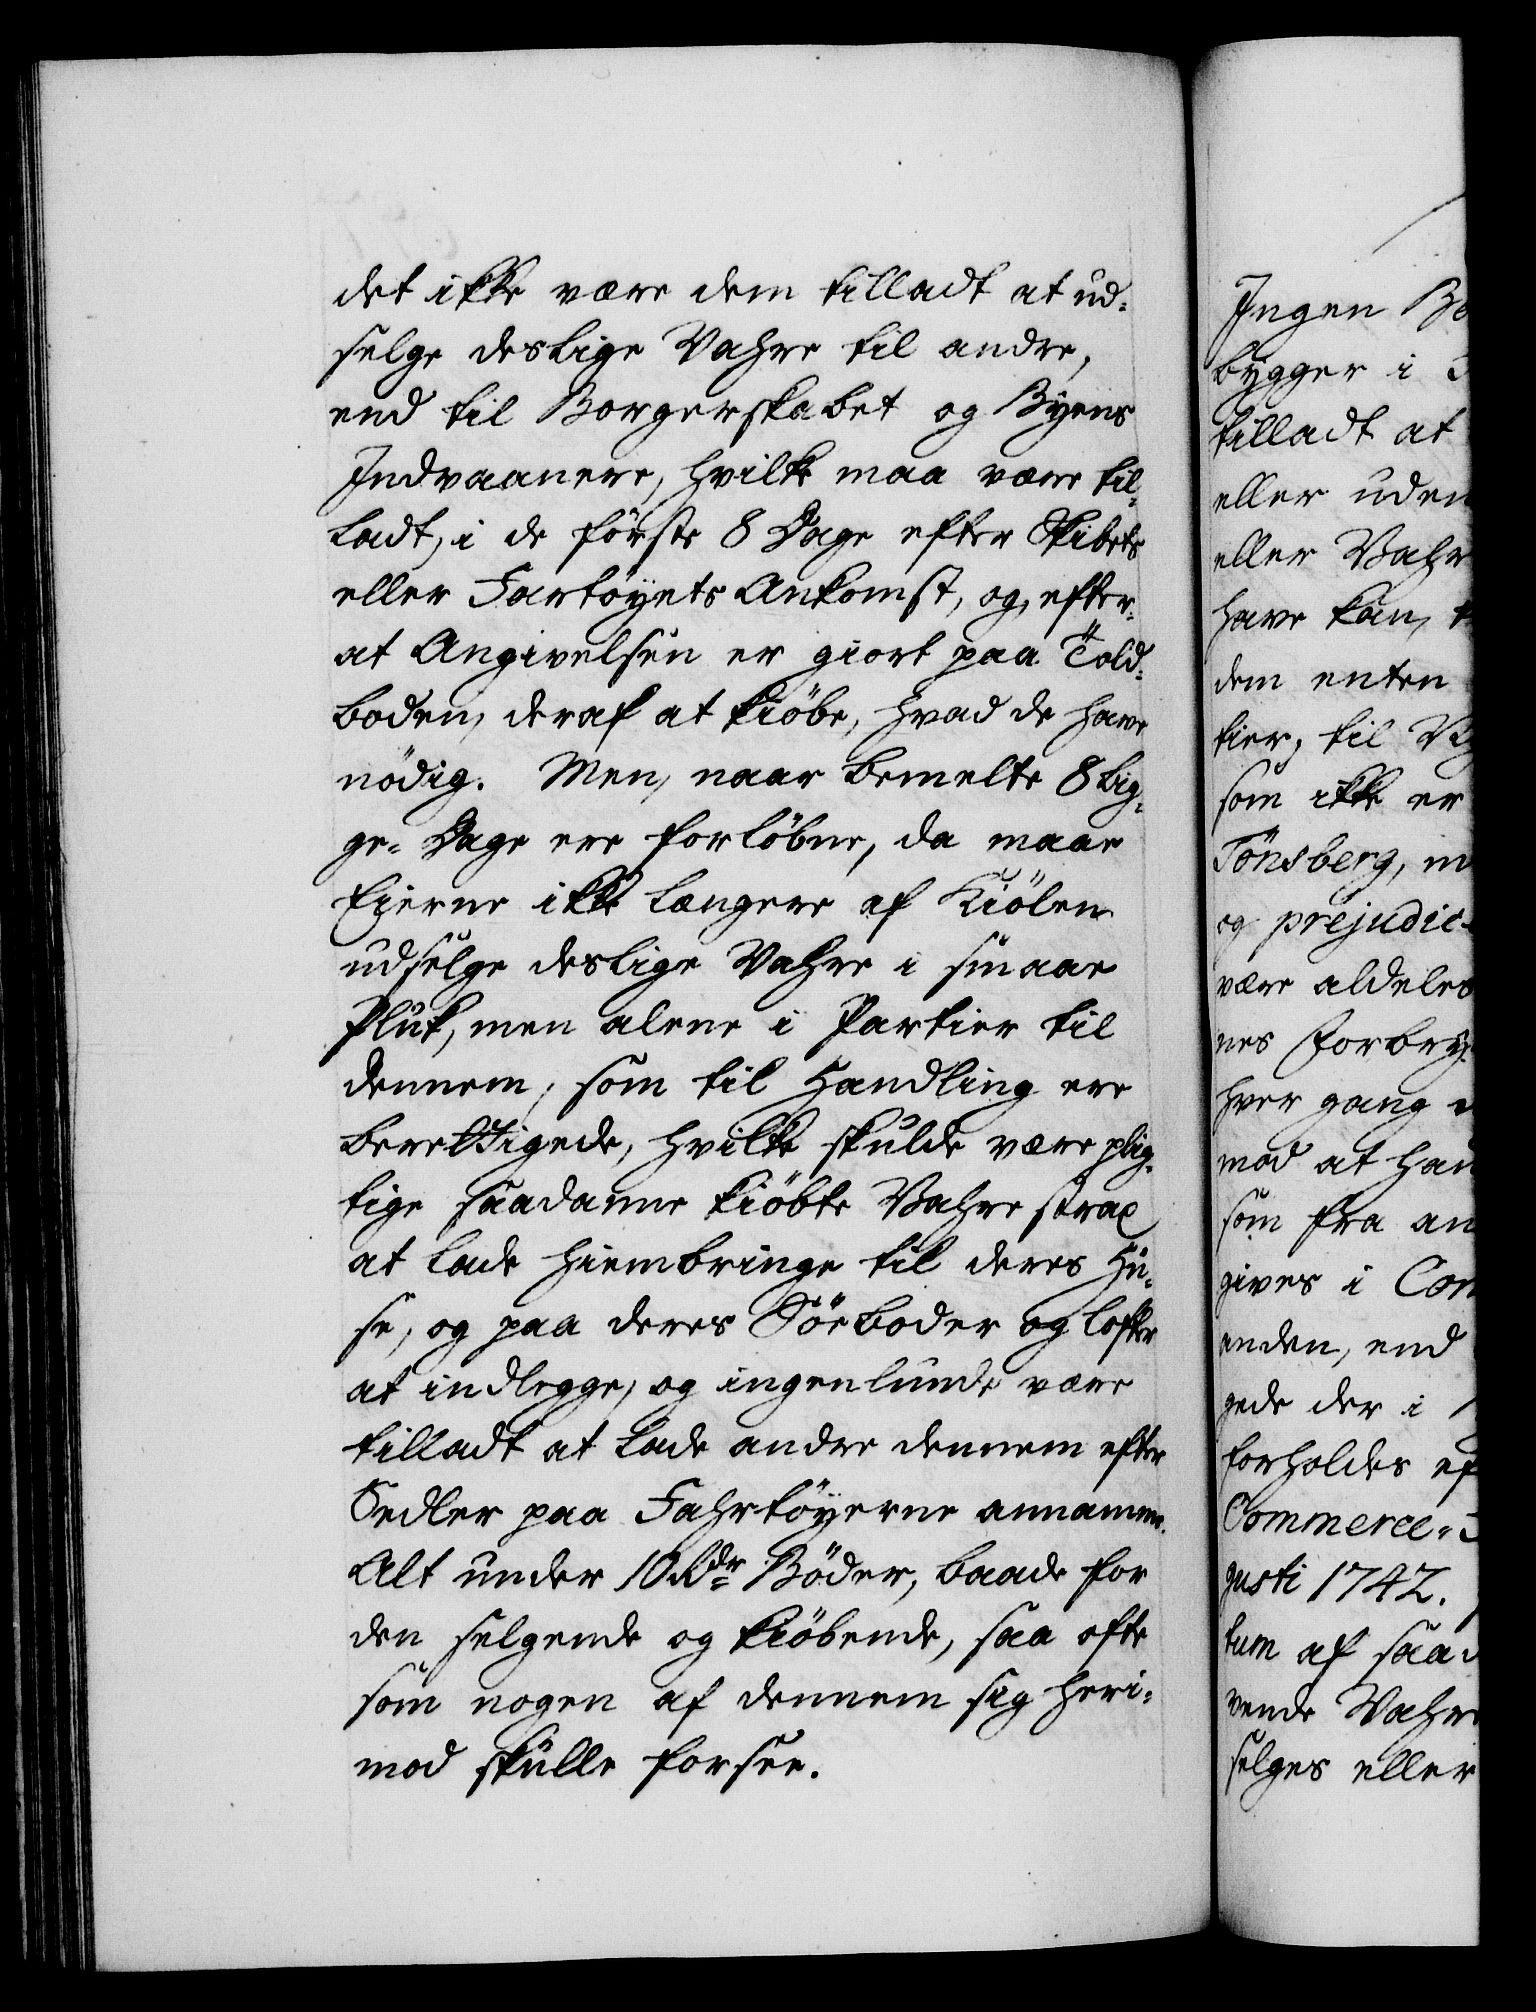 det ikke være dem tilladt at ud-
selge deslige Vahre til andre,
end til Borgerskabet og Byens
Indvaanere, hvilke maa være til-
ladt, i de förste 8 Dage efter Skibets
eller Fartöyets Ankomst, og, efter-
at Angivelsen er giort paa Told-
boden, deraf at kiöbe, hvad de have
nödig. Men, naar bemelte 8 lig-
ge-Dage ere forlöbne, da maae
Eierne ikke længere af Kiölen
udselge deslige Vahre i smaae
Pluk, men alene i Partier til
dennem, som til Handling ere
berettigede, hvilke skulde være plig-
tige saadanne kiöbte Vahre strax
at lade hiembringe til deres Hu-
se, og paa deres Söeboder og lofter
at indlegge, og ingenlunde være
tilladt at lade andre dennem efter
Sedler paa Fahrtöyerne annamme.
Alt under 10 Rdr Böder, baade for
den selgende og kiöbende, saa ofte
som nogen af dennem sig heri-
mod skulle forsee.
Ingen Bo
bygger i
tilladt at
eller uden
eller Vahr
have kan,
dem enten
tier, til
som ikke er
Tönsberg, m
og prejudic
være aldeles
nes Forbry
hver gang
mod at han
som fra an
gives i Con
anden, end
gede der i
forholdes ef
Commerce-
gusti 1742.
tum af saad
vende Vahre
selges eller